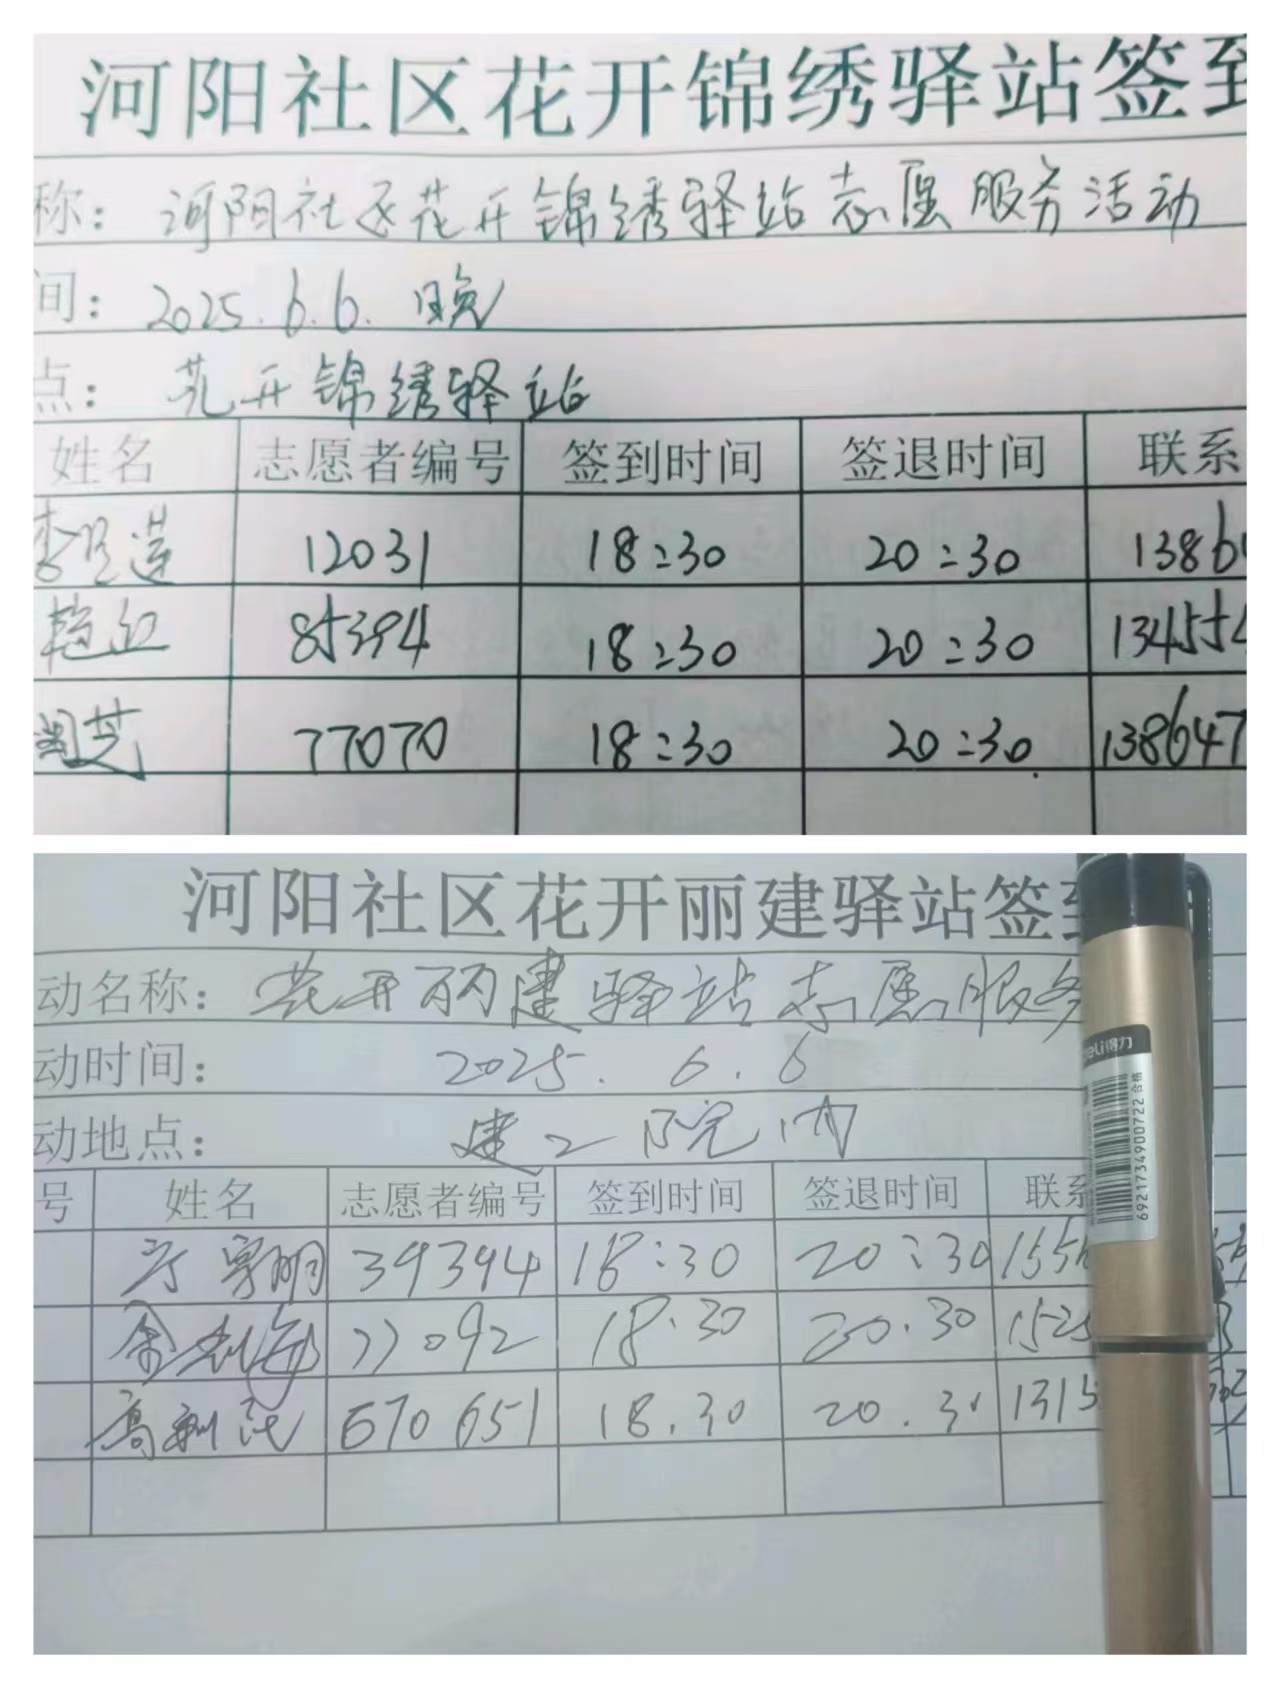 河阳社区花开锦绣驿站签到
称：河阳社区花开锦绣驿站志愿服务活动
间：2025.6.6.晚
点：花开锦绣驿站
姓名 志愿者编号 签到时间 签退时间 联系
李 莲 12031 18:30 20:30 1386
艳红 85394 18:30 20:30 13455
芝 77070 18:30 20:30. 138647
河阳社区花开丽建驿站签到
动名称：花开丽建驿站志愿服务
动时间：2025.6.6
动地点：建工院内
号 姓名 志愿者编号 签到时间 签退时间 联系
明 39394 18:30 20:30 155
77092 18.30 20.30 152
高 670651 18.30 20.3 1315
deli得力
6921734900722 合格